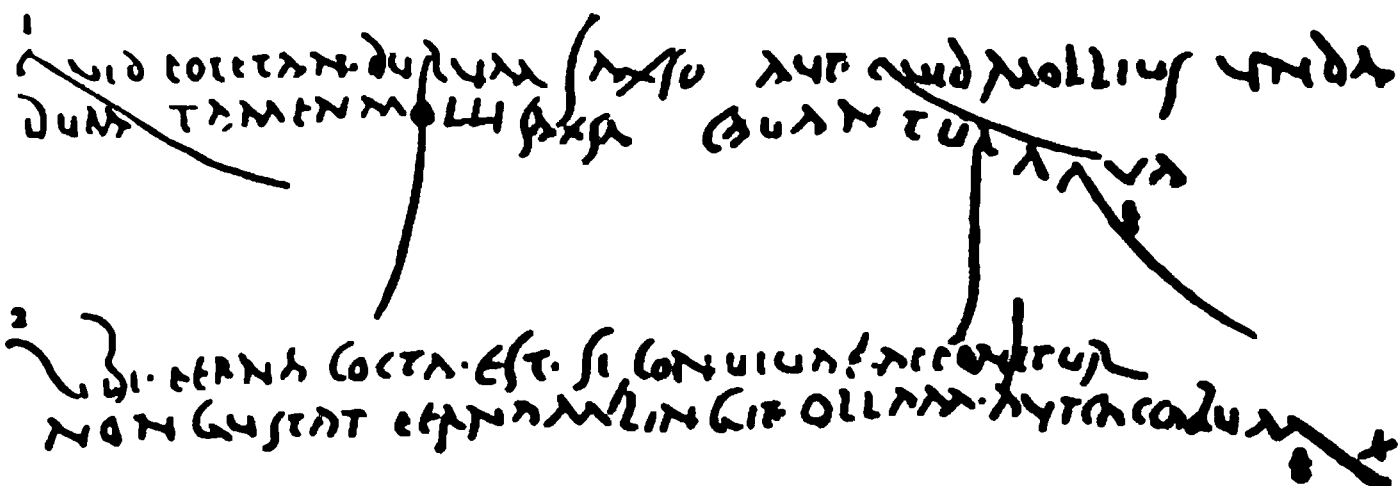 1
quid pote tan durum saxso aut quid mollius unda
dura tamen molli saxsa cavantur aqua
2
ubi perna cocta est si convivae apponitur
non gustat pernam lingit ollam aut caccabum